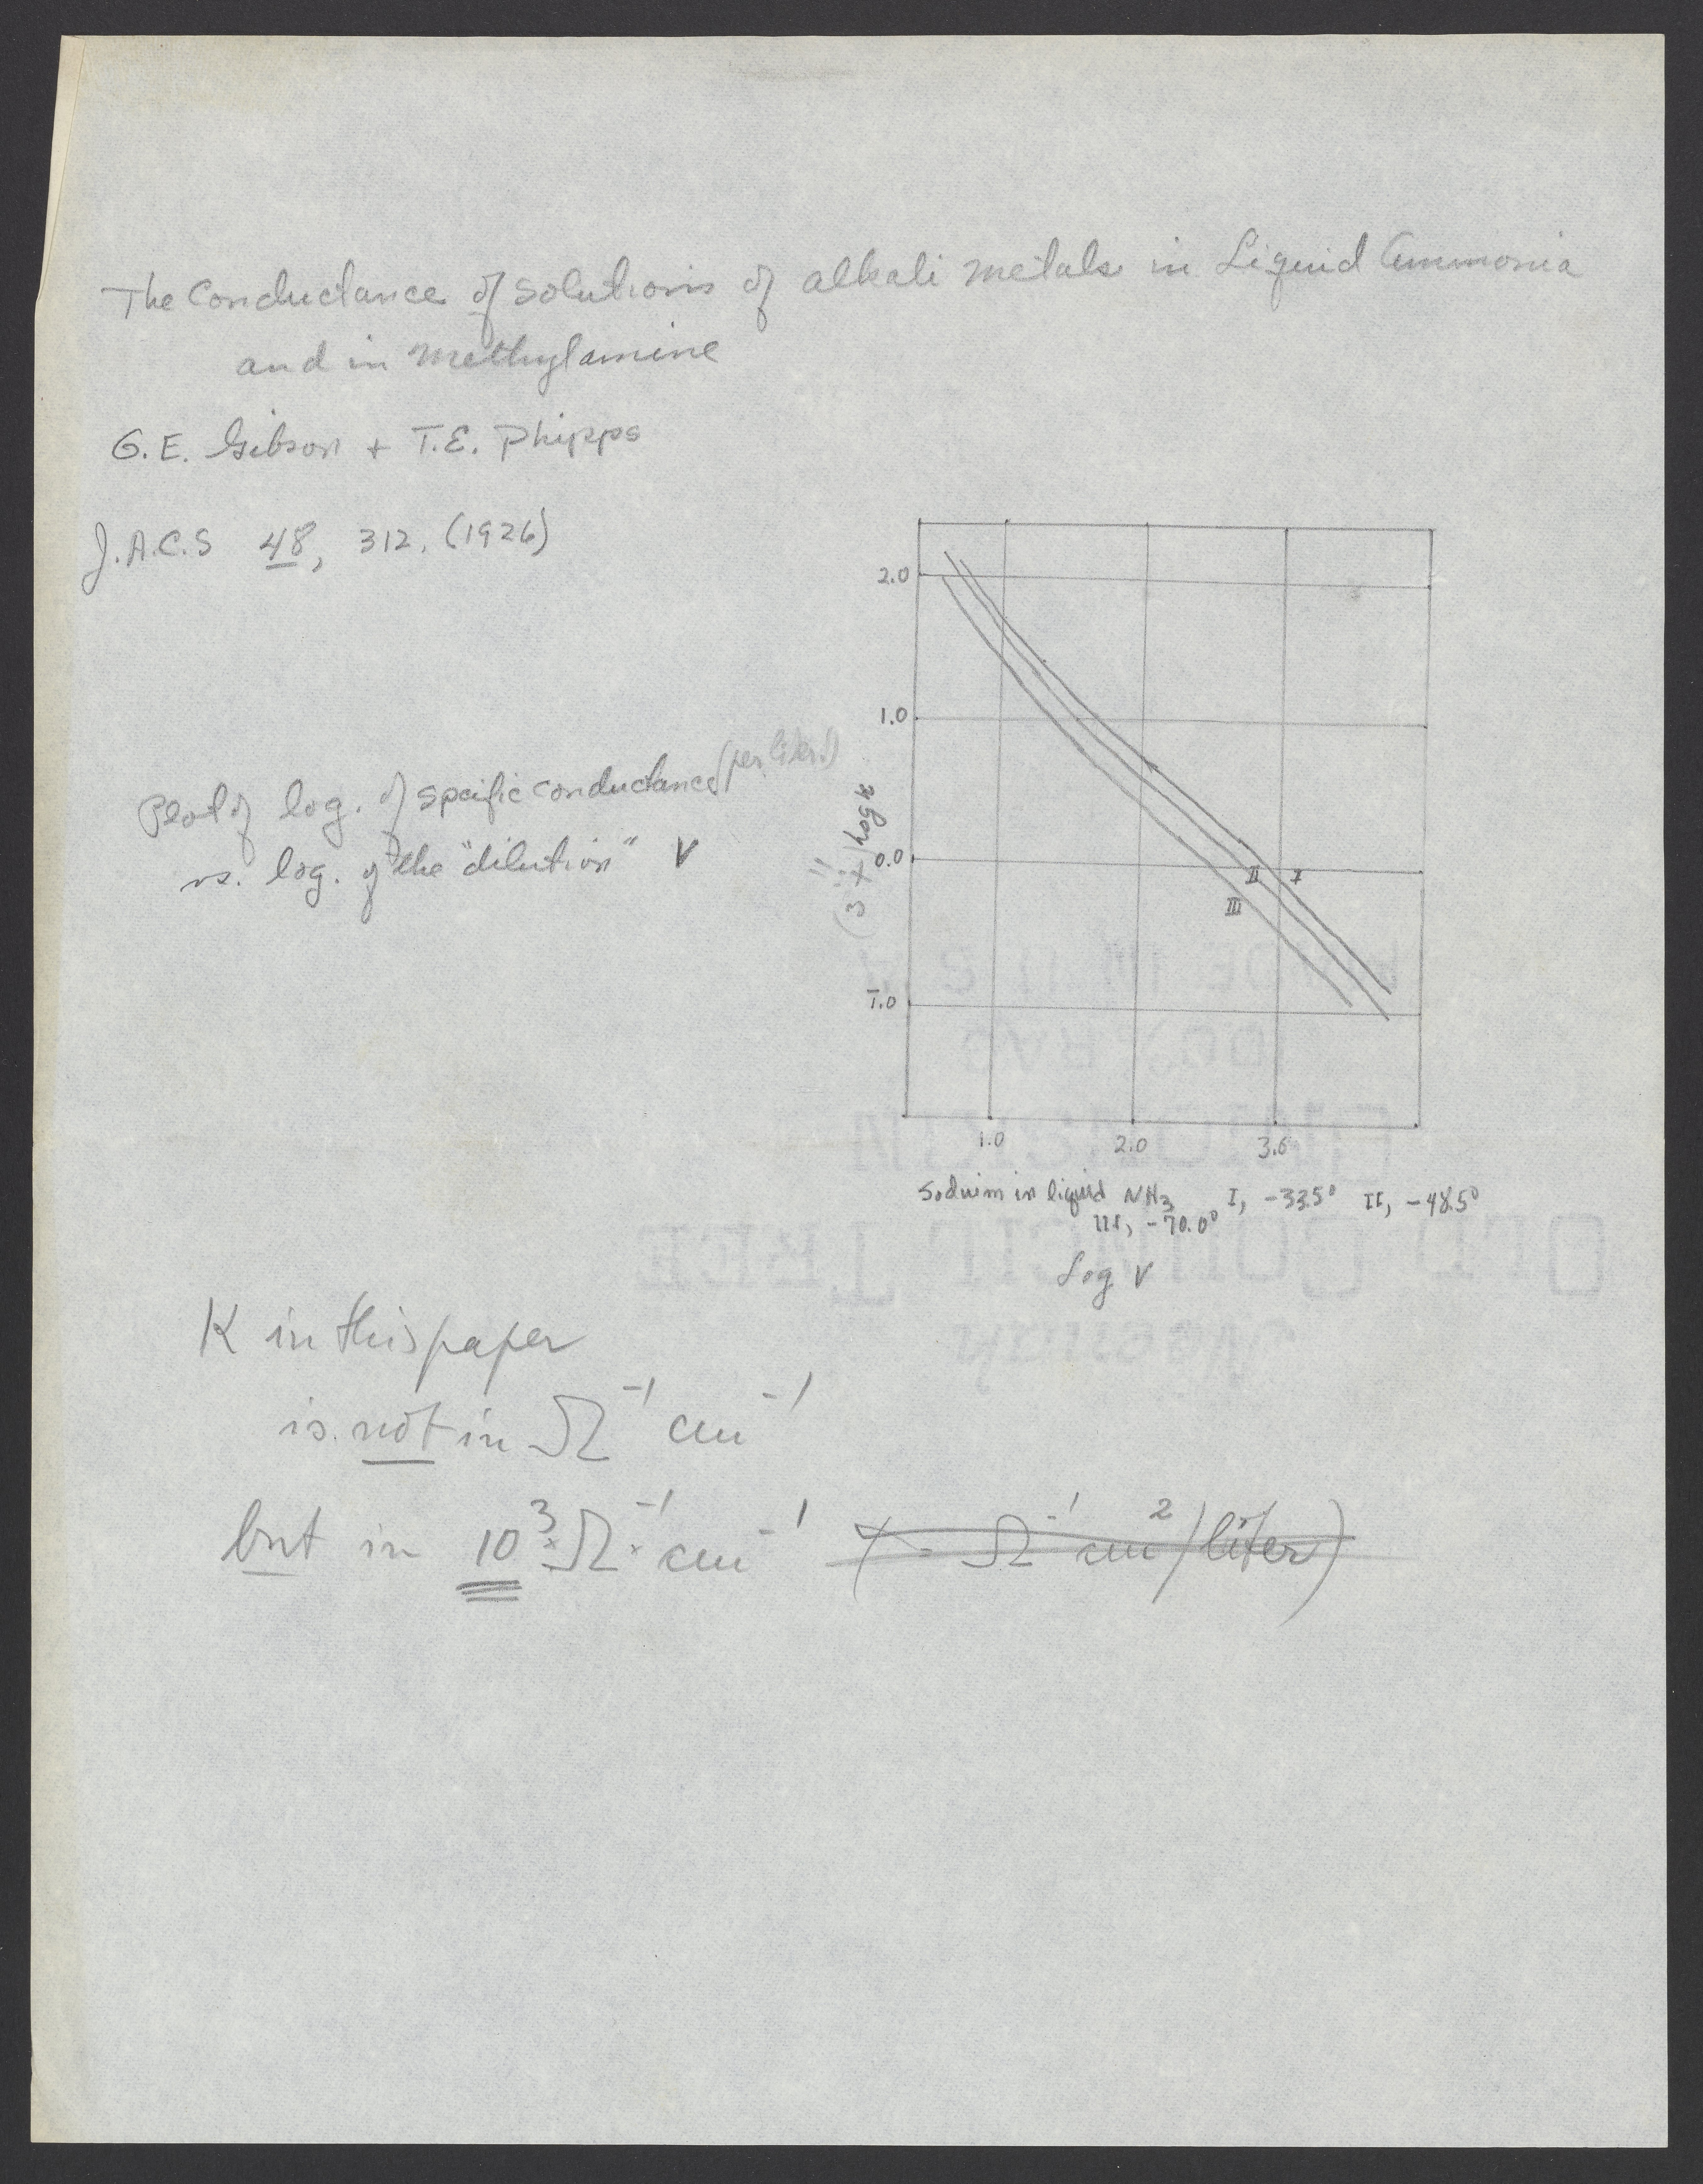 The Conductance of Solutions of alkali metals in Liquid Ammonia
and in Methylamine
G.E. Gibson + T.E. Phipps
J.A.C.S 48, 312, (1926)
Plot of log. of specific conductance (per liter!)
vs. log. of the "dilution" V
2.0
1.0
0.0
1̅.0
(3 + log κ
II I
III
1.0 2.0 3.0
Sodium in liquid NH₃ I, -33.5° II, -48.5°
III, -70.0°
Log V
K in this paper
is not in Ω⁻¹ cm⁻¹
but in 10³·Ω⁻¹·cm⁻¹ ( Ω⁻¹ cm²/liter)
OLD COUNCIL TREE